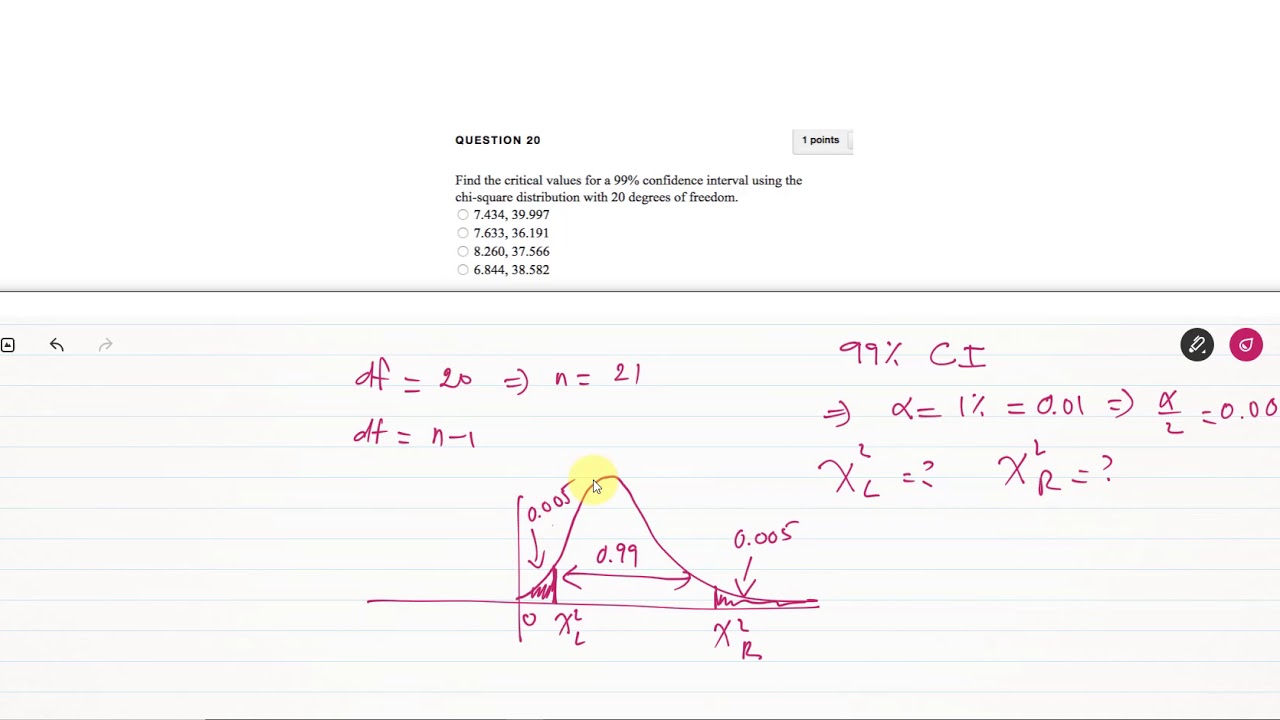 QUESTION 20
1 points
Find the critical values for a 99% confidence interval using the
chi-square distribution with 20 degrees of freedom.
7.434, 39.997
7.633, 36.191
8.260, 37.566
6.844, 38.582
df = 20 => n = 21
df = n-1
99% CI
=> α = 1% = 0.01 => α/2 = 0.00
χ²L = ? χ²R = ?
0.005
0.99
0.005
0 χ²L χ²R